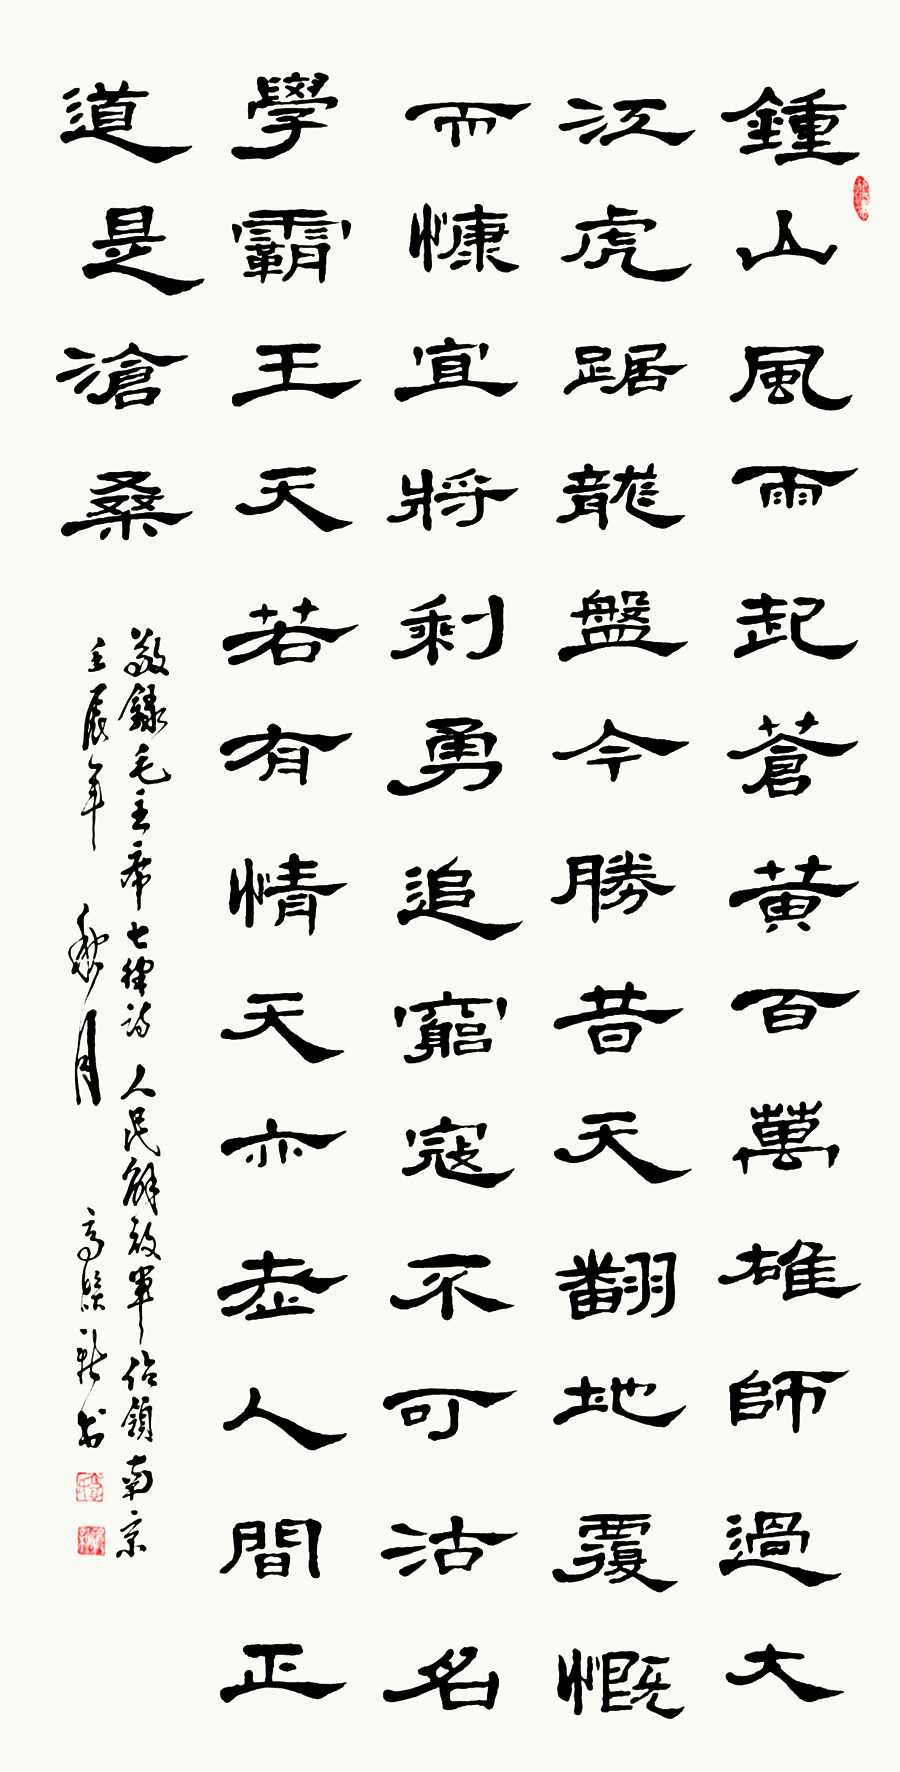 鍾山風雨起蒼黃百萬雄師過大
江虎踞龍盤今勝昔天翻地覆慨
而慷宜將剩勇追窮寇不可沽名
學霸王天若有情天亦老人間正
道是滄桑
敬錄毛主席七律詩 人民解放軍佔領南京
壬辰年 月 高 新书